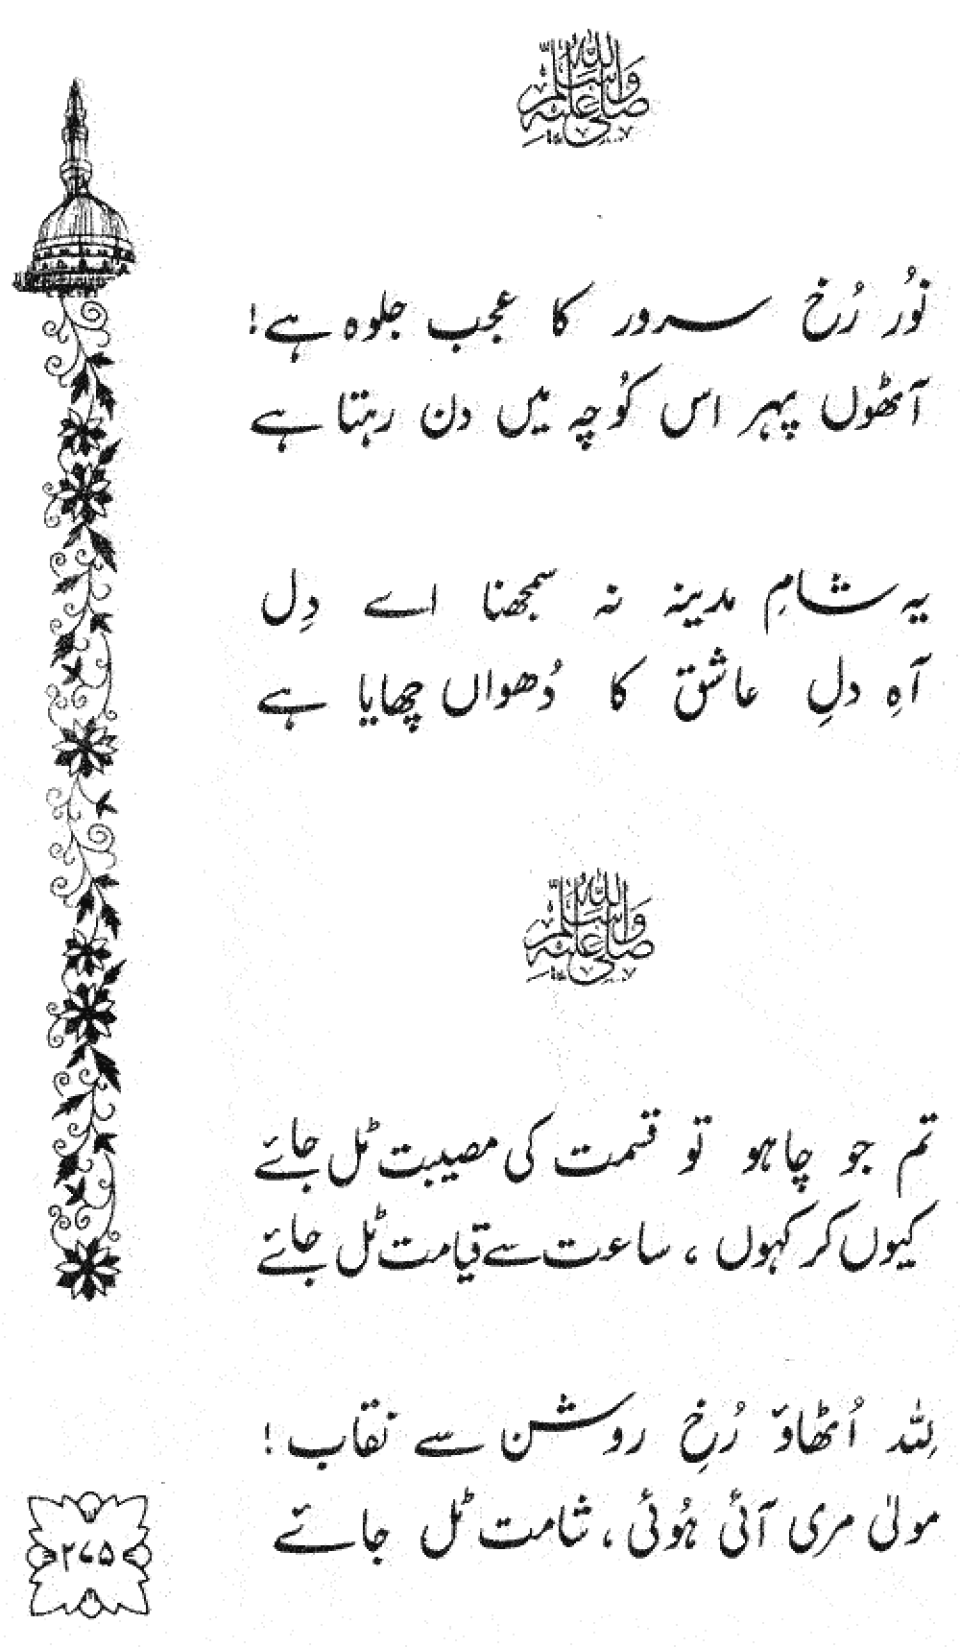 صلی اللہ علیہ وسلم
نُورِ رُخِ سرور کا عجب جلوہ ہے!
آٹھوں پہر اس کُوچہ میں دن رہتا ہے
یہ شامِ مدینہ نہ سمجھنا اے دِل
آہِ دلِ عاشق کا دُھواں چھایا ہے
صلی اللہ علیہ وسلم
تم جو چاہو تو قسمت کی مصیبت ٹل جائے
کیوں کر کہوں ، ساعت سے قیامت ٹل جائے
لِلّٰہ اُٹھاؤ رُخِ روشن سے نقاب !
مولیٰ مری آئی ہُوئی ، شامت ٹل جائے
۲۷۵